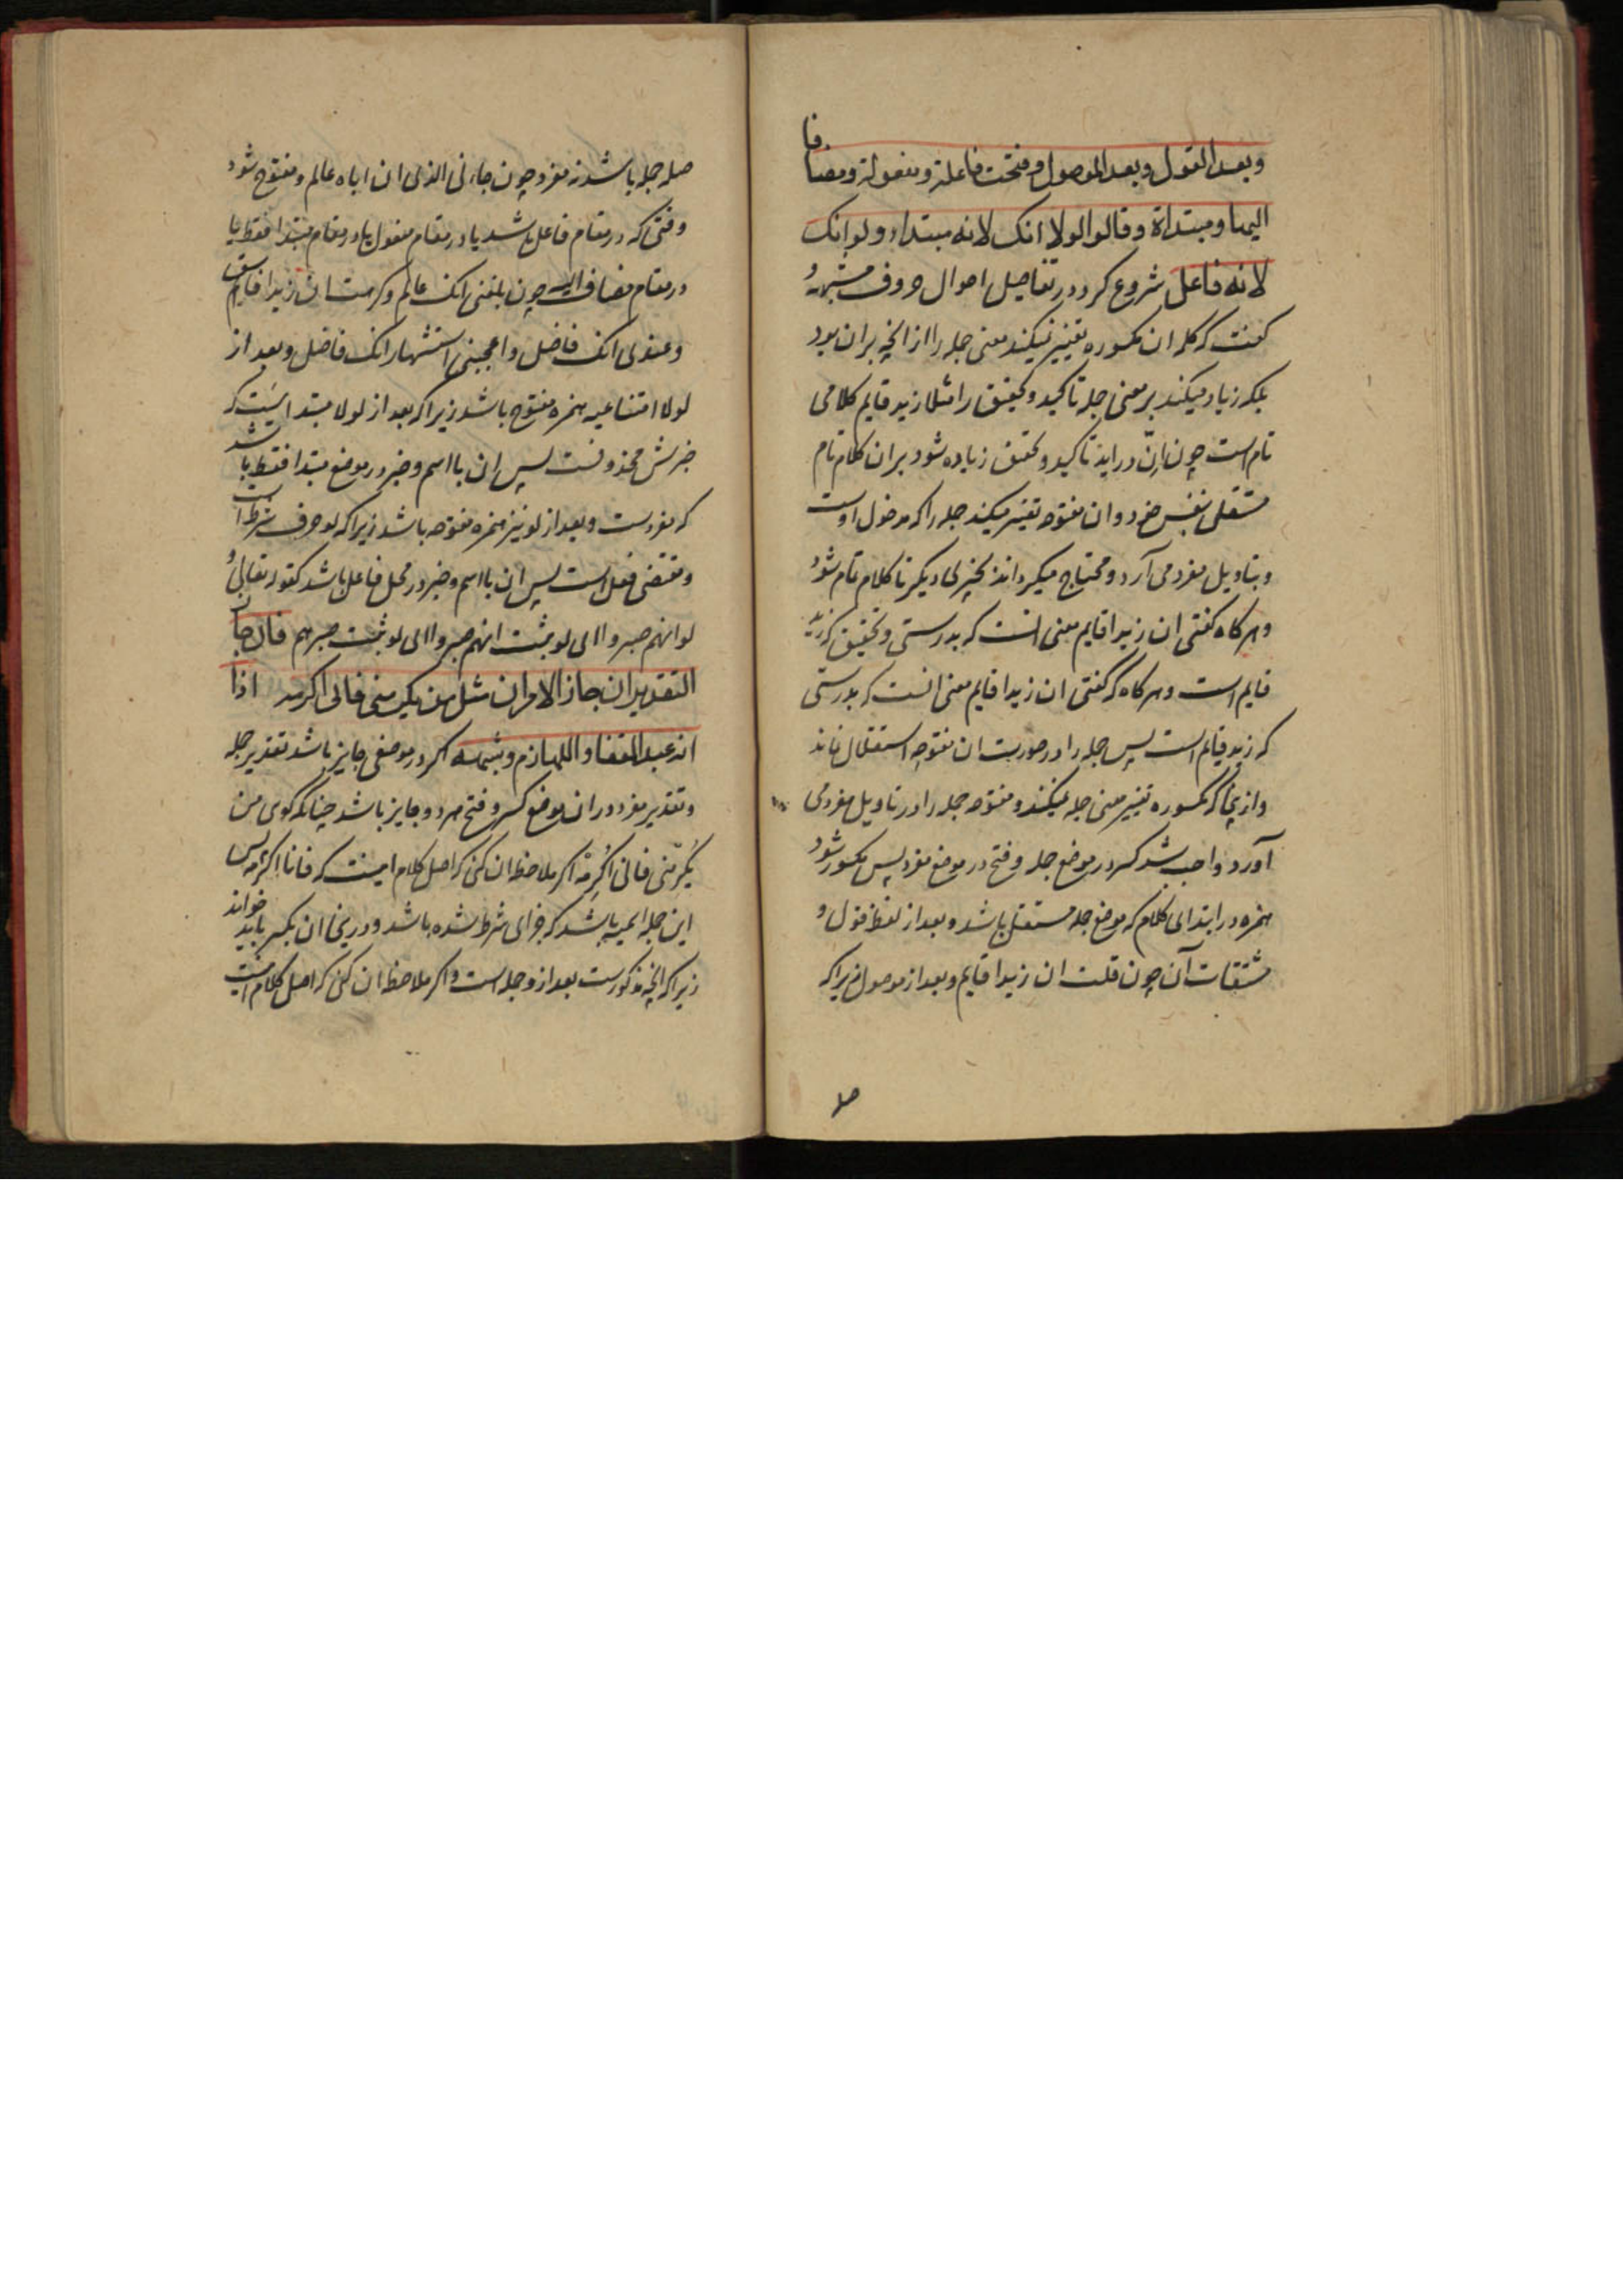 وبعد القول وبعد الموصول وفتحت فاعلة ومفعولة ومضافا
اليها ومبتداة وقالوا لولا انک لانه مبتداء ولو انک
لانه فاعل شروع کرد در تفاصیل احوال حروف مشبهه و
کفت که کلمه ان مکسوره تغییر نمیکند معنی جمله را از انچه بران بود
بلکه زیاد میکند بر معنی جمله تاکید و تحقیق را مثلا زید قایم کلامی
تام است چون انّ دراید تاکید و تحقیق زیاده شود بران کلام تام
مستقل بنفس خود و ان مفتوحه تغییر میکند جمله را که مدخول اوست
و بتاویل مفرد می آرد و محتاج میکرداند بچیزی دیکر تا کلام تام شود
و هرکاه کفتی ان زیدا قایم معنی انست که بدرستی و تحقیق که زید
قایم است و هرکاه که کفتی ان زیدا قایم معنی انست که بدرستی
که زید قایم است پس جمله را در صورت ان مفتوحه استقلال نماند
و ازینجا که مکسوره تغییر معنی جمله نمیکند و مفتوحه جمله را در تاویل مفرد می
آورد واجب شد کسر در موضع جمله و فتح در موضع مفرد پس مکسور شود
همزه در ابتدای کلام که موضع جمله مستقل باشد و بعد از لفظ قول و
مشتقات آن چون قلت ان زیدا قایم و بعد از موصول زیرا که
صله
صله جمله باشد نه مفرد چون جاءنی الذی ان اباه عالم و مفتوح شود
وقتی که در مقام فاعل باشد یا در مقام مفعول یا در مقام مبتدا فقط یا
در مقام مضاف الیه چون بلغنی انک عالم و کرهت ان زیدا قایم
وعندی انک فاضل واعجبنی اشتهار انک فاضل و بعد از
لولا امتناعیه همزه مفتوح باشد زیرا که بعد از لولا مبتدا ایست که
خبرش محذوفست پس ان با اسم و خبر در موضع مبتدا فقط باشد
که مفردست و بعد از لو نیز همزه مفتوحه باشد زیرا که لو حرف شرط است
و مقتضی فعل است پس ان با اسم و خبر در محل فاعل باشد کقوله تعالی و
لو انهم صبروا ای لو ثبت انهم صبروا ای لو ثبت صبرهم فان جاز
التقدیران جاز الامران مثل من یکرمنی فانی اکرمه اذا
انه عبد القفا و اللهازم وشبهه اکر در موضعی جایز باشد تقدیر جمله
و تقدیر مفرد در ان موضع کسر و فتح هر دو جایز باشد چنانکه کوی من
یُکرمنی فانی اُکرِمُه اکر ملاحظه ان کنی که اصل کلام اینست که فانا اکرمه پس
این جمله اسمیه باشد که جزای شرط شده باشد و درینجا ان بکسر باید خواند
زیرا که انچه مذکورست بعد ازو جمله است و اکر ملاحظه ان کنی که اصل کلام اینست